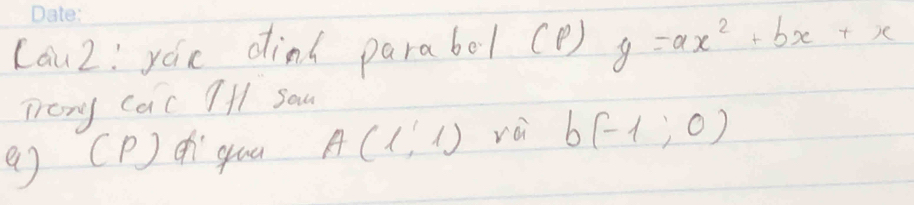 Date:
Câu2: xác định parabol (P) y = ax² + bx + x
Trong các TH sau
a) (P) đi qua A(1; 1) và b(-1; 0)